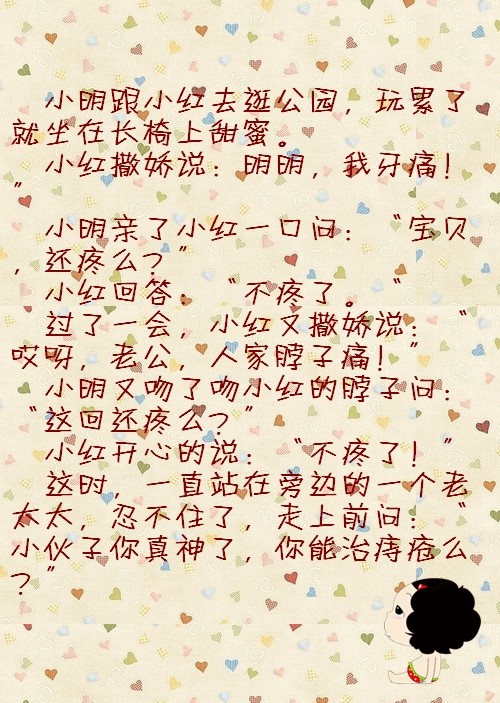 小明跟小红去逛公园，玩累了
就坐在长椅上甜蜜。
小红撒娇说：明明，我牙痛！
”
小明亲了小红一口问：“宝贝
，还疼么？”
小红回答：“不疼了。“
过了一会，小红又撒娇说：“
哎呀，老公，人家脖子痛！”
小明又吻了吻小红的脖子问：
“这回还疼么？”
小红开心的说：“不疼了！”
这时，一直站在旁边的一个老
太太，忍不住了，走上前问：“
小伙子你真神了，你能治痔疮么
？”